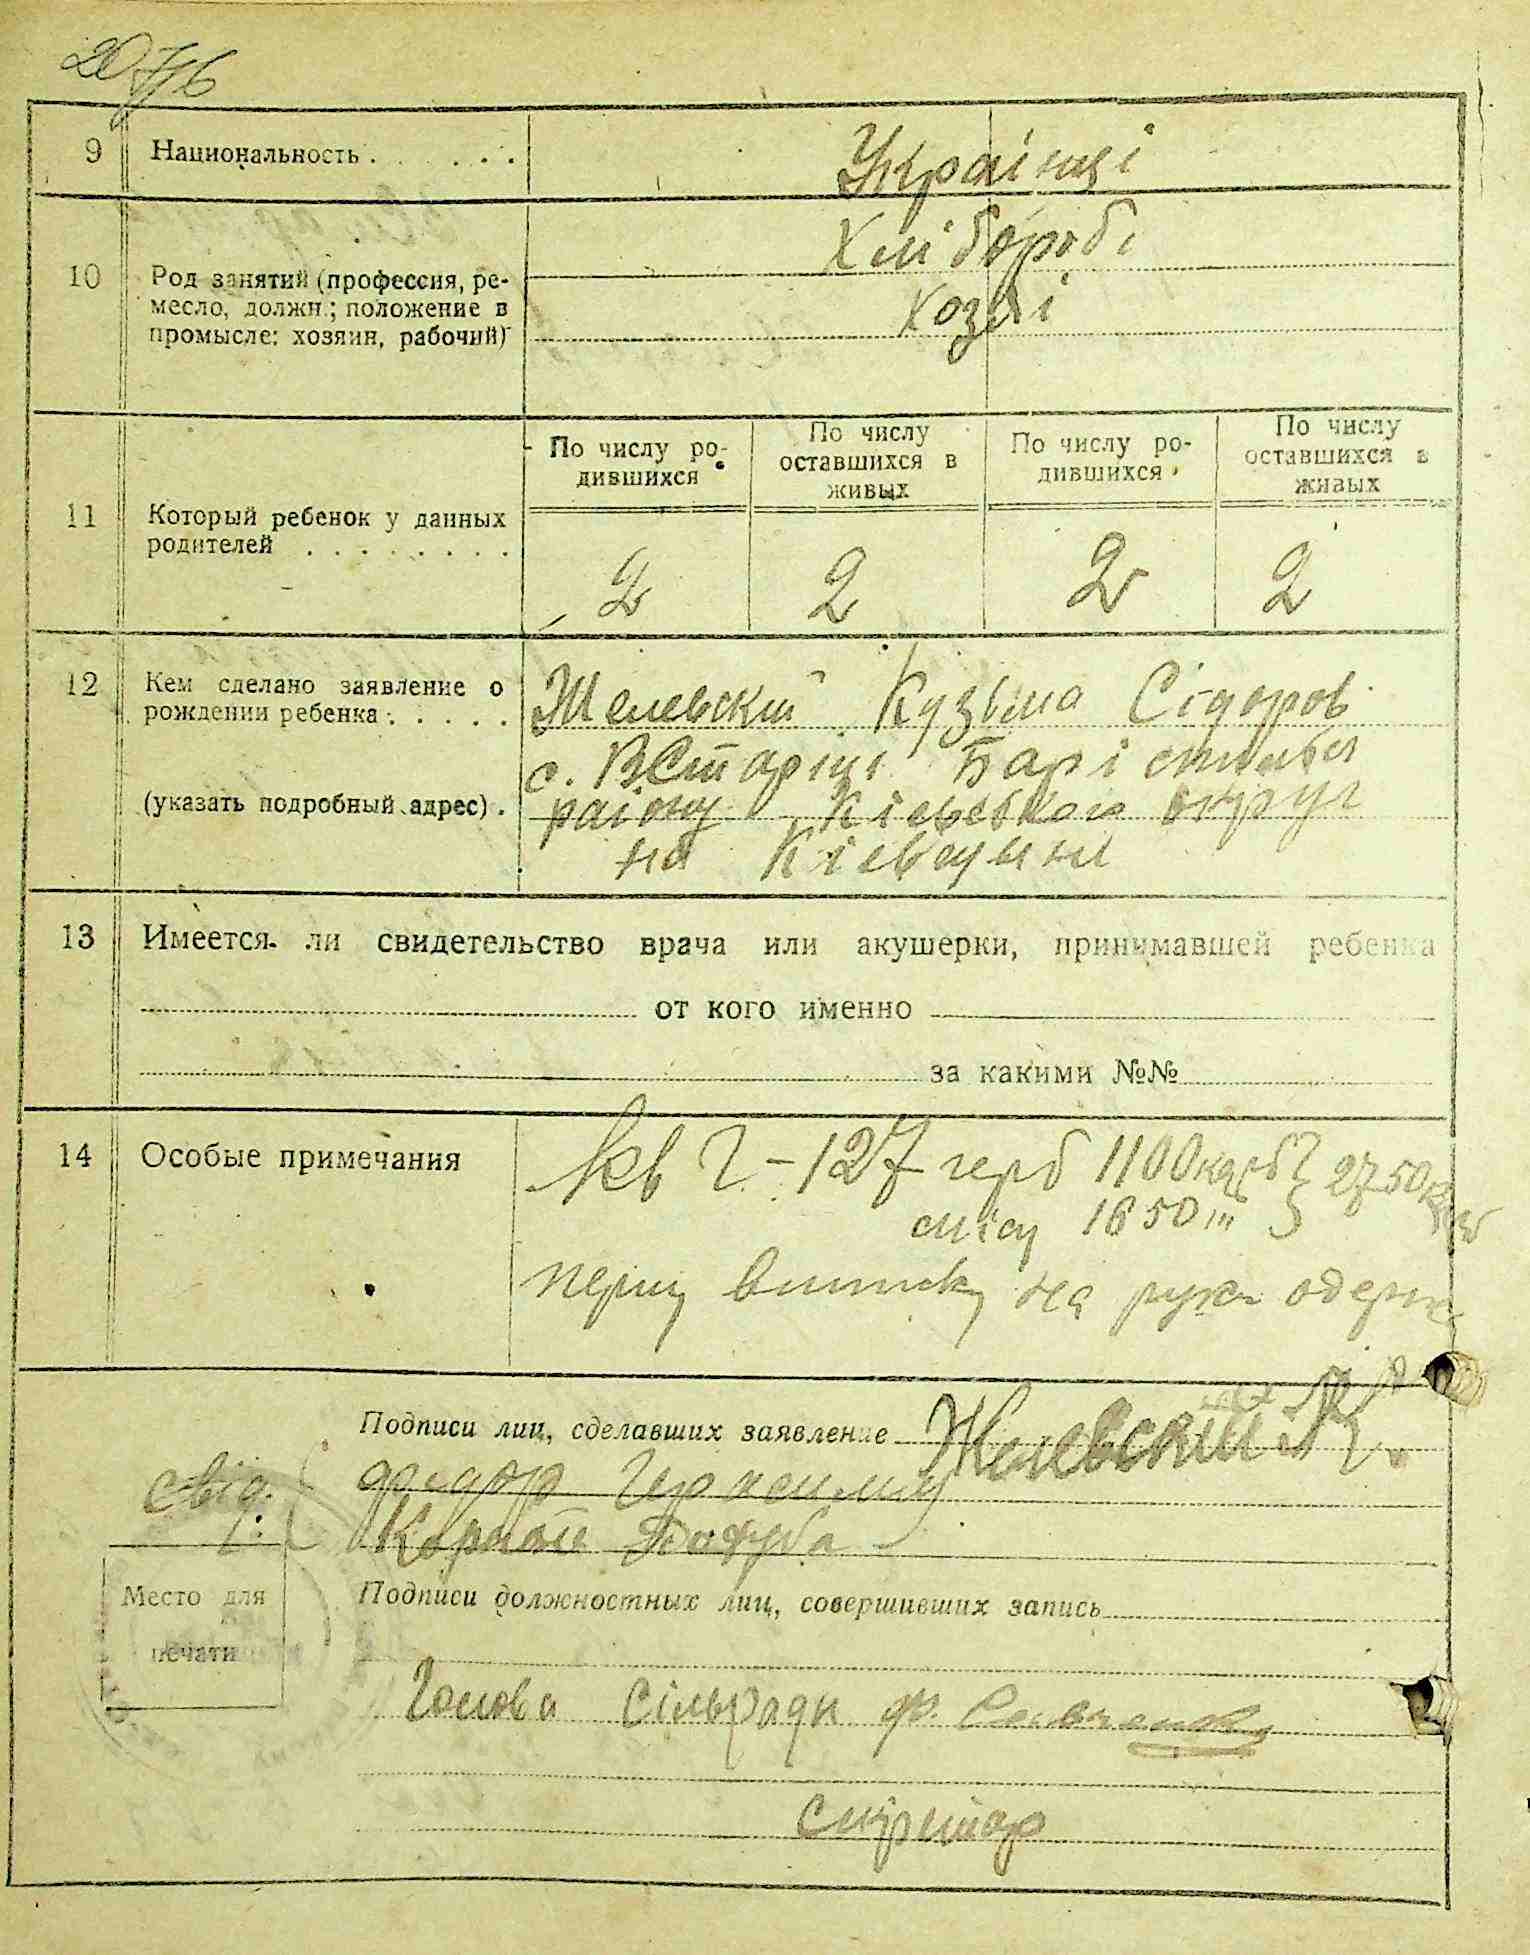 20 7/16
9 Национальность . . . . . . Українці
10 Род занятий (профессия, ре-
месло, должн.; положение в
промысле: хозяин, рабочий)
Хліборобі
Хозяі
11 Который ребенок у данных
родителей . . . . . . . .
По числу ро-
дившихся
По числу
оставшихся в
живых
По числу ро-
дившихся
По числу
оставшихся в
живых
2 2 2 2
12 Кем сделано заявление о
рождении ребенка . . . . .
(указать подробный адрес) .
Желевский Кузьма Сідоров
с. ВСтаріці Барі
району Кіевského округи
на Кіевщині
13 Имеется ли свидетельство врача или акушерки, принимавшей ребенка
от кого именно
за какими №№
14 Особые примечания
кв Г-127 герб 1100 карб } 2750
місц 1650 ///
перш виписку на руки одерж
Подписи лиц, сделавших заявление Желевский К.
свід. Федор Герасим
Корній
Место для
печати
Подписи должностных лиц, совершивших запись
Голова сільради Ф. Савченко
Секретар